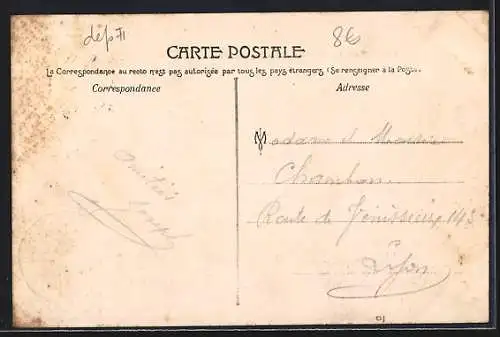 dép 71
8€
CARTE POSTALE
La Correspondance au recto n'est pas autorisée par tous les pays étrangers (Se renseigner à la Poste.
Correspondance
Adresse
Madame et Monsieur
Chambon
Route de Vénissieux 143
Lyon
Amitiés
Joseph